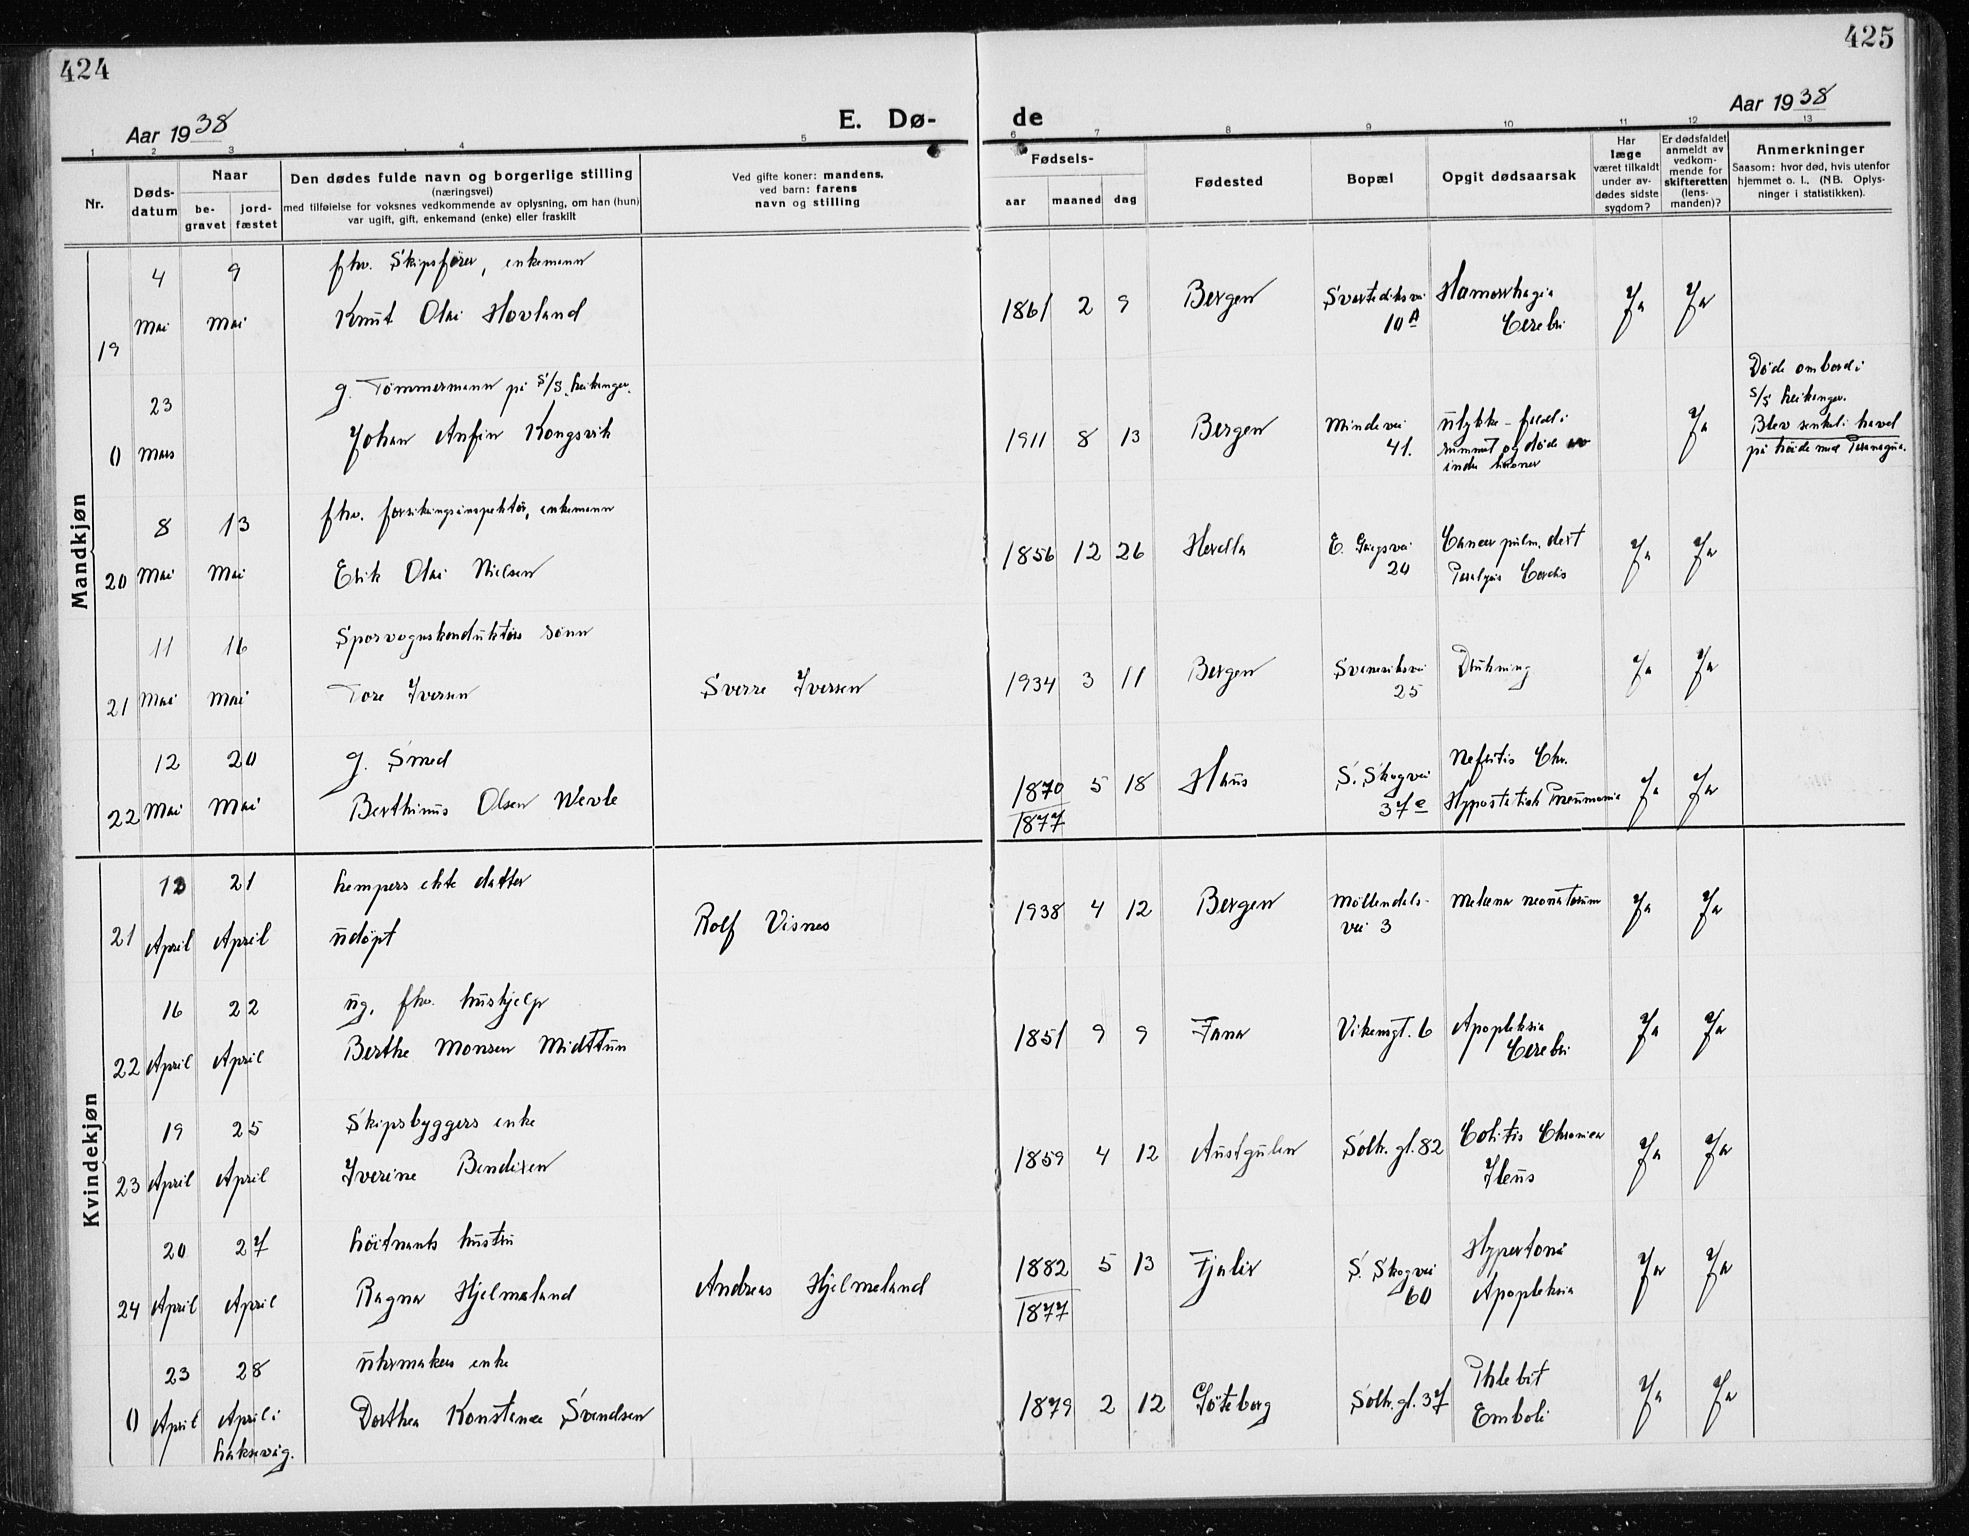 424
425
Aar 1938
E. Dø-
de
Aar 1938
1 2 3 4 5 6 7 8 9 10 11 12 13
Nr.
Døds-
datum
Naar
be-
gravet
jord-
fæstet
Den dødes fulde navn og borgerlige stilling
(næringsvei)
med tilføielse for voksnes vedkommende av oplysning, om han (hun)
var ugift, gift, enkemand (enke) eller fraskilt
Ved gifte koner: mandens,
ved barn: farens
navn og stilling
Fødsels-
aar maaned dag
Fødested
Bopæl
Opgit dødsaarsak
Har
læge
været tilkaldt
under av-
dødes sidste
sygdom?
Er dødsfaldet
anmeldt av
vedkom-
mende for
skifteretten
(lens-
manden)?
Anmerkninger
Saasom: hvor død, hvis utenfor
hjemmet o. l., (NB. Oplys-
ninger i statistikken).
Mandkjøn
4 9 fhv. Skipsfører, enkemann
19 Mai Mai Knut Olai Hovland 1861 2 9 Bergen Svartediksvei
10A Hæmorrhagia
Cerebri Ja Ja
23 g. Tømmermann på S/S.
0 Mars Johan Anfin Kongsvik 1911 8 13 Bergen Mindevei
41. Ulykke - faldt i
rummet og døde av
indre Ja
Døde ombord i
S/S
Blev senket i havet
på høide med Paranagua.
8 13 fhv. forsikringsinspektør, enkemann
20 Mai Mai Erik Olai Nielsen 1856 12 26 Herdla E. Griegsvei
20 Cancer pulm. dext
Paralysis Cordis Ja Ja
11 16 Sporvognskonduktørs sønn
21 Mai Mai Tore Iversen Sverre Iversen 1934 3 11 Bergen
25 Drukning Ja Ja
12 20 g. Smed
22 Mai Mai Berthinus Olsen Wevle 1870 5 18 Haus S. Skogvei
37e Nefritis Chr.
Hypostatisk Pneumonie Ja Ja
1877
Kvindekjøn
12 21 Kempers ekte datter
21 April April udøpt Rolf Visnes 1938 4 12 Bergen Møllendals-
vei 3 Melena neonatorum Ja Ja
16 22 ug. fhv. hushjelp
22 April April Berthe Monsen Midttun 1851 9 9 Fana Vikensgt. 6 Apopleksia
Cerebri Ja Ja
19 25 Skipsbyggers enke
23 April April Iverine Bendixen 1859 4 12 Austgulen Solh. gt. 82 Colitis Chronica
Ileus Ja Ja
20 27 Løitnants hustru
24 April April Ragna Hjelmeland Andreas Hjelmeland 1882 5 13 Fjaler S. Skogvei
60 Hypertoni
Apopleksia Ja Ja
1877
23 28 Uhrmakers enke
0 April April i
Laksevåg. Dorthea Konstance Svendsen 1879 2 12 Gøteborg Solh. gt. 37 Phlebit
Emboli Ja Ja